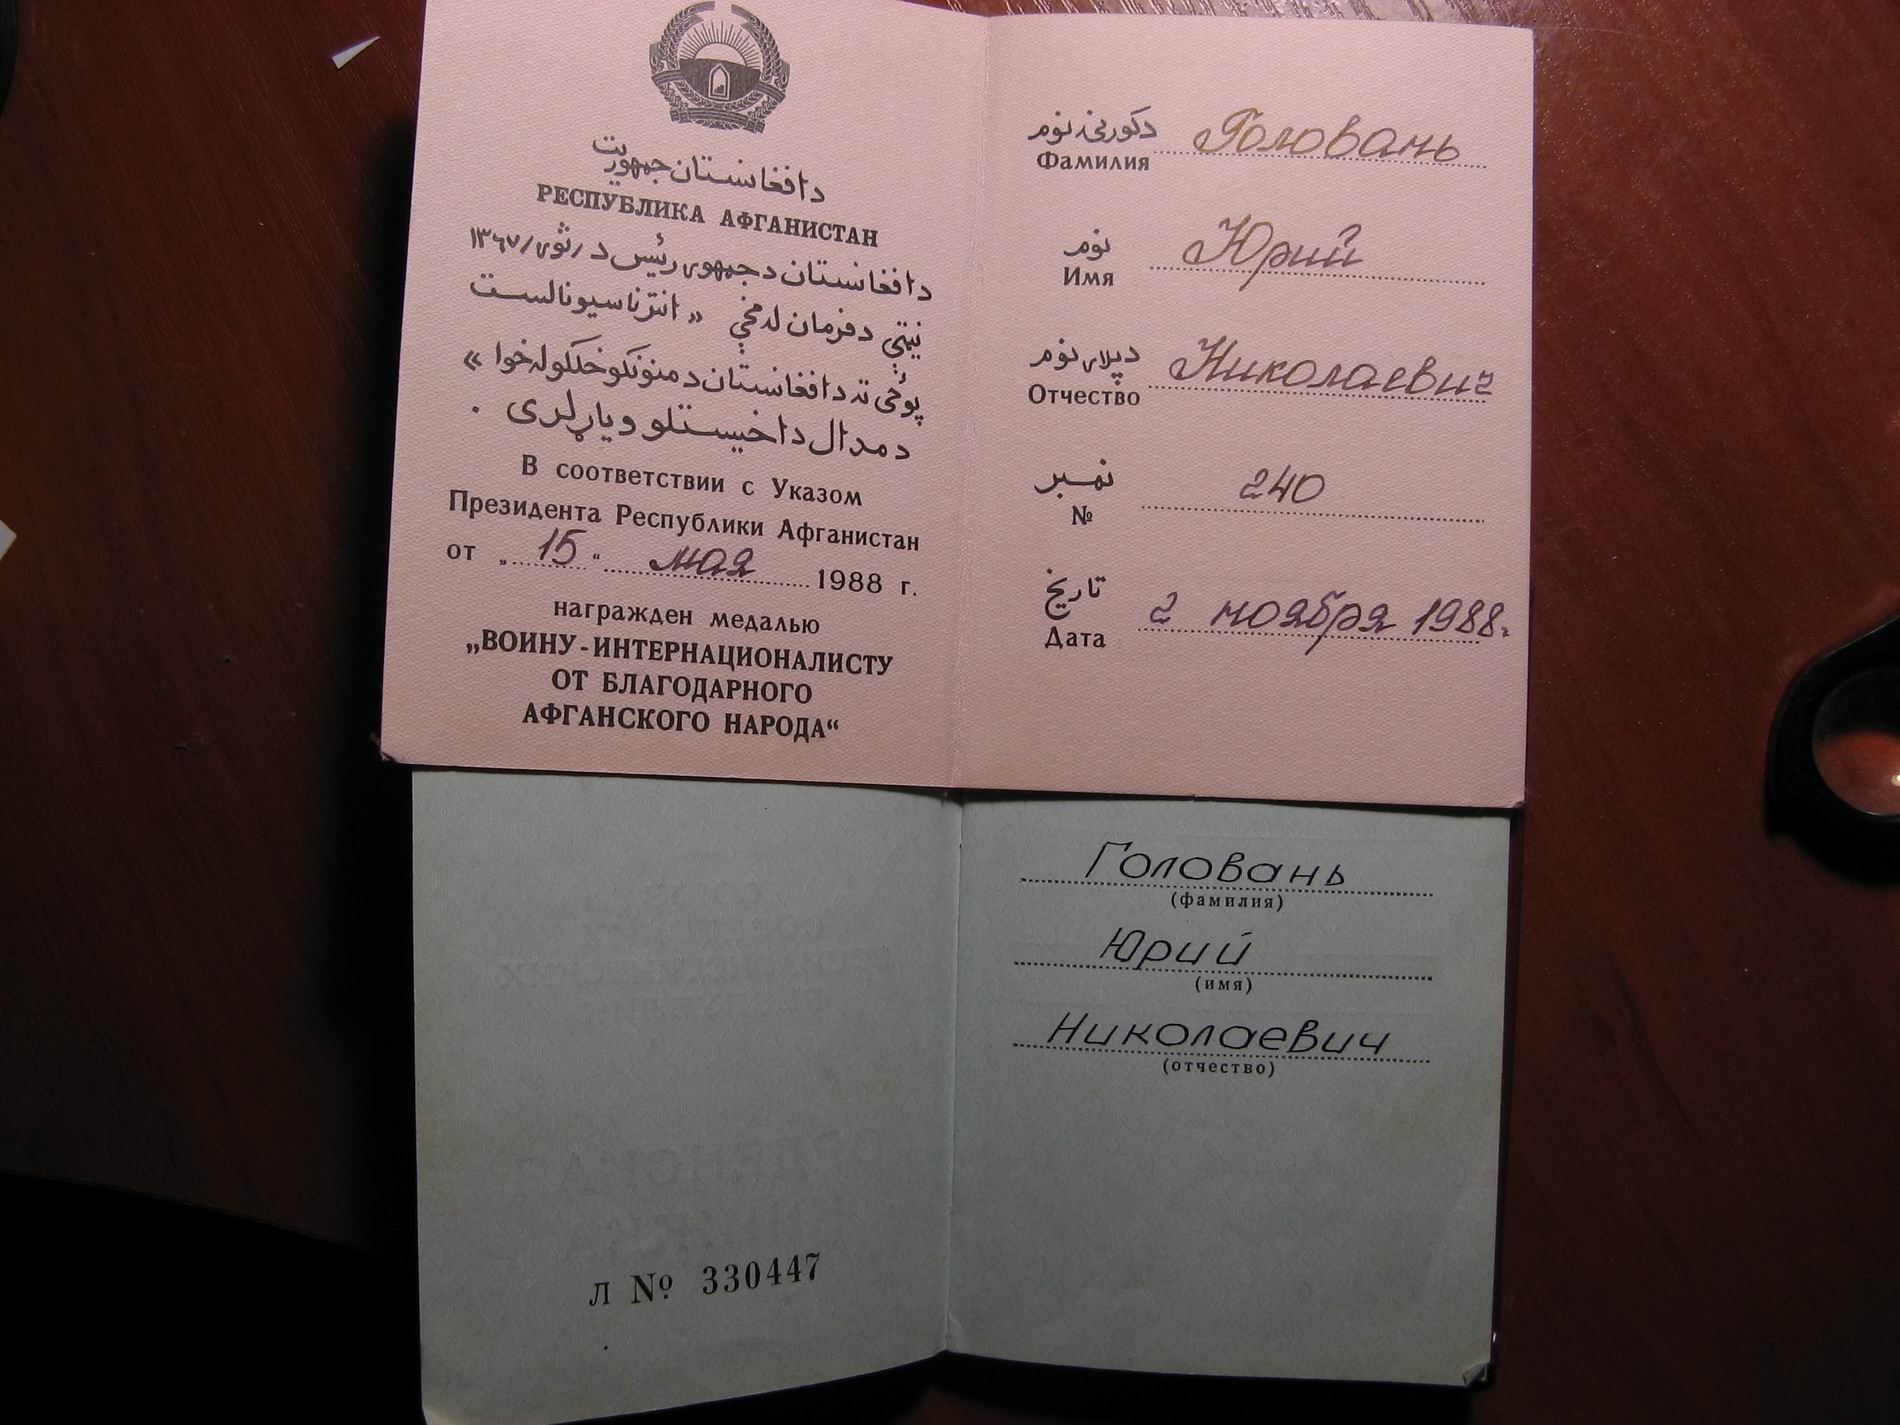 دافغانستان جمهوریت
РЕСПУБЛИКА АФГАНИСТАН
دافغانستان دجمهوری رئیس د / ثوی / ۱۳۶۷
نیټې دفرمان له مخې « انترناسیونالست
پوځی ته دافغانستان دمنونکو خلکو له خوا »
دمدال داخیستلو ویاړ لری .
В соответствии с Указом
Президента Республики Афганистан
от „ 15 “ мая 1988 г.
награжден медалью
„ВОИНУ-ИНТЕРНАЦИОНАЛИСТУ
ОТ БЛАГОДАРНОГО
АФГАНСКОГО НАРОДА“
دکورنۍ نوم
Фамилия Головань
نوم
Имя Юрий
دپلار نوم
Отчество Николаевич
نمبر
№ 240
تاریخ
Дата 2 ноября 1988г.
Л № 330447
Головань
(фамилия)
Юрий
(имя)
Николаевич
(отчество)